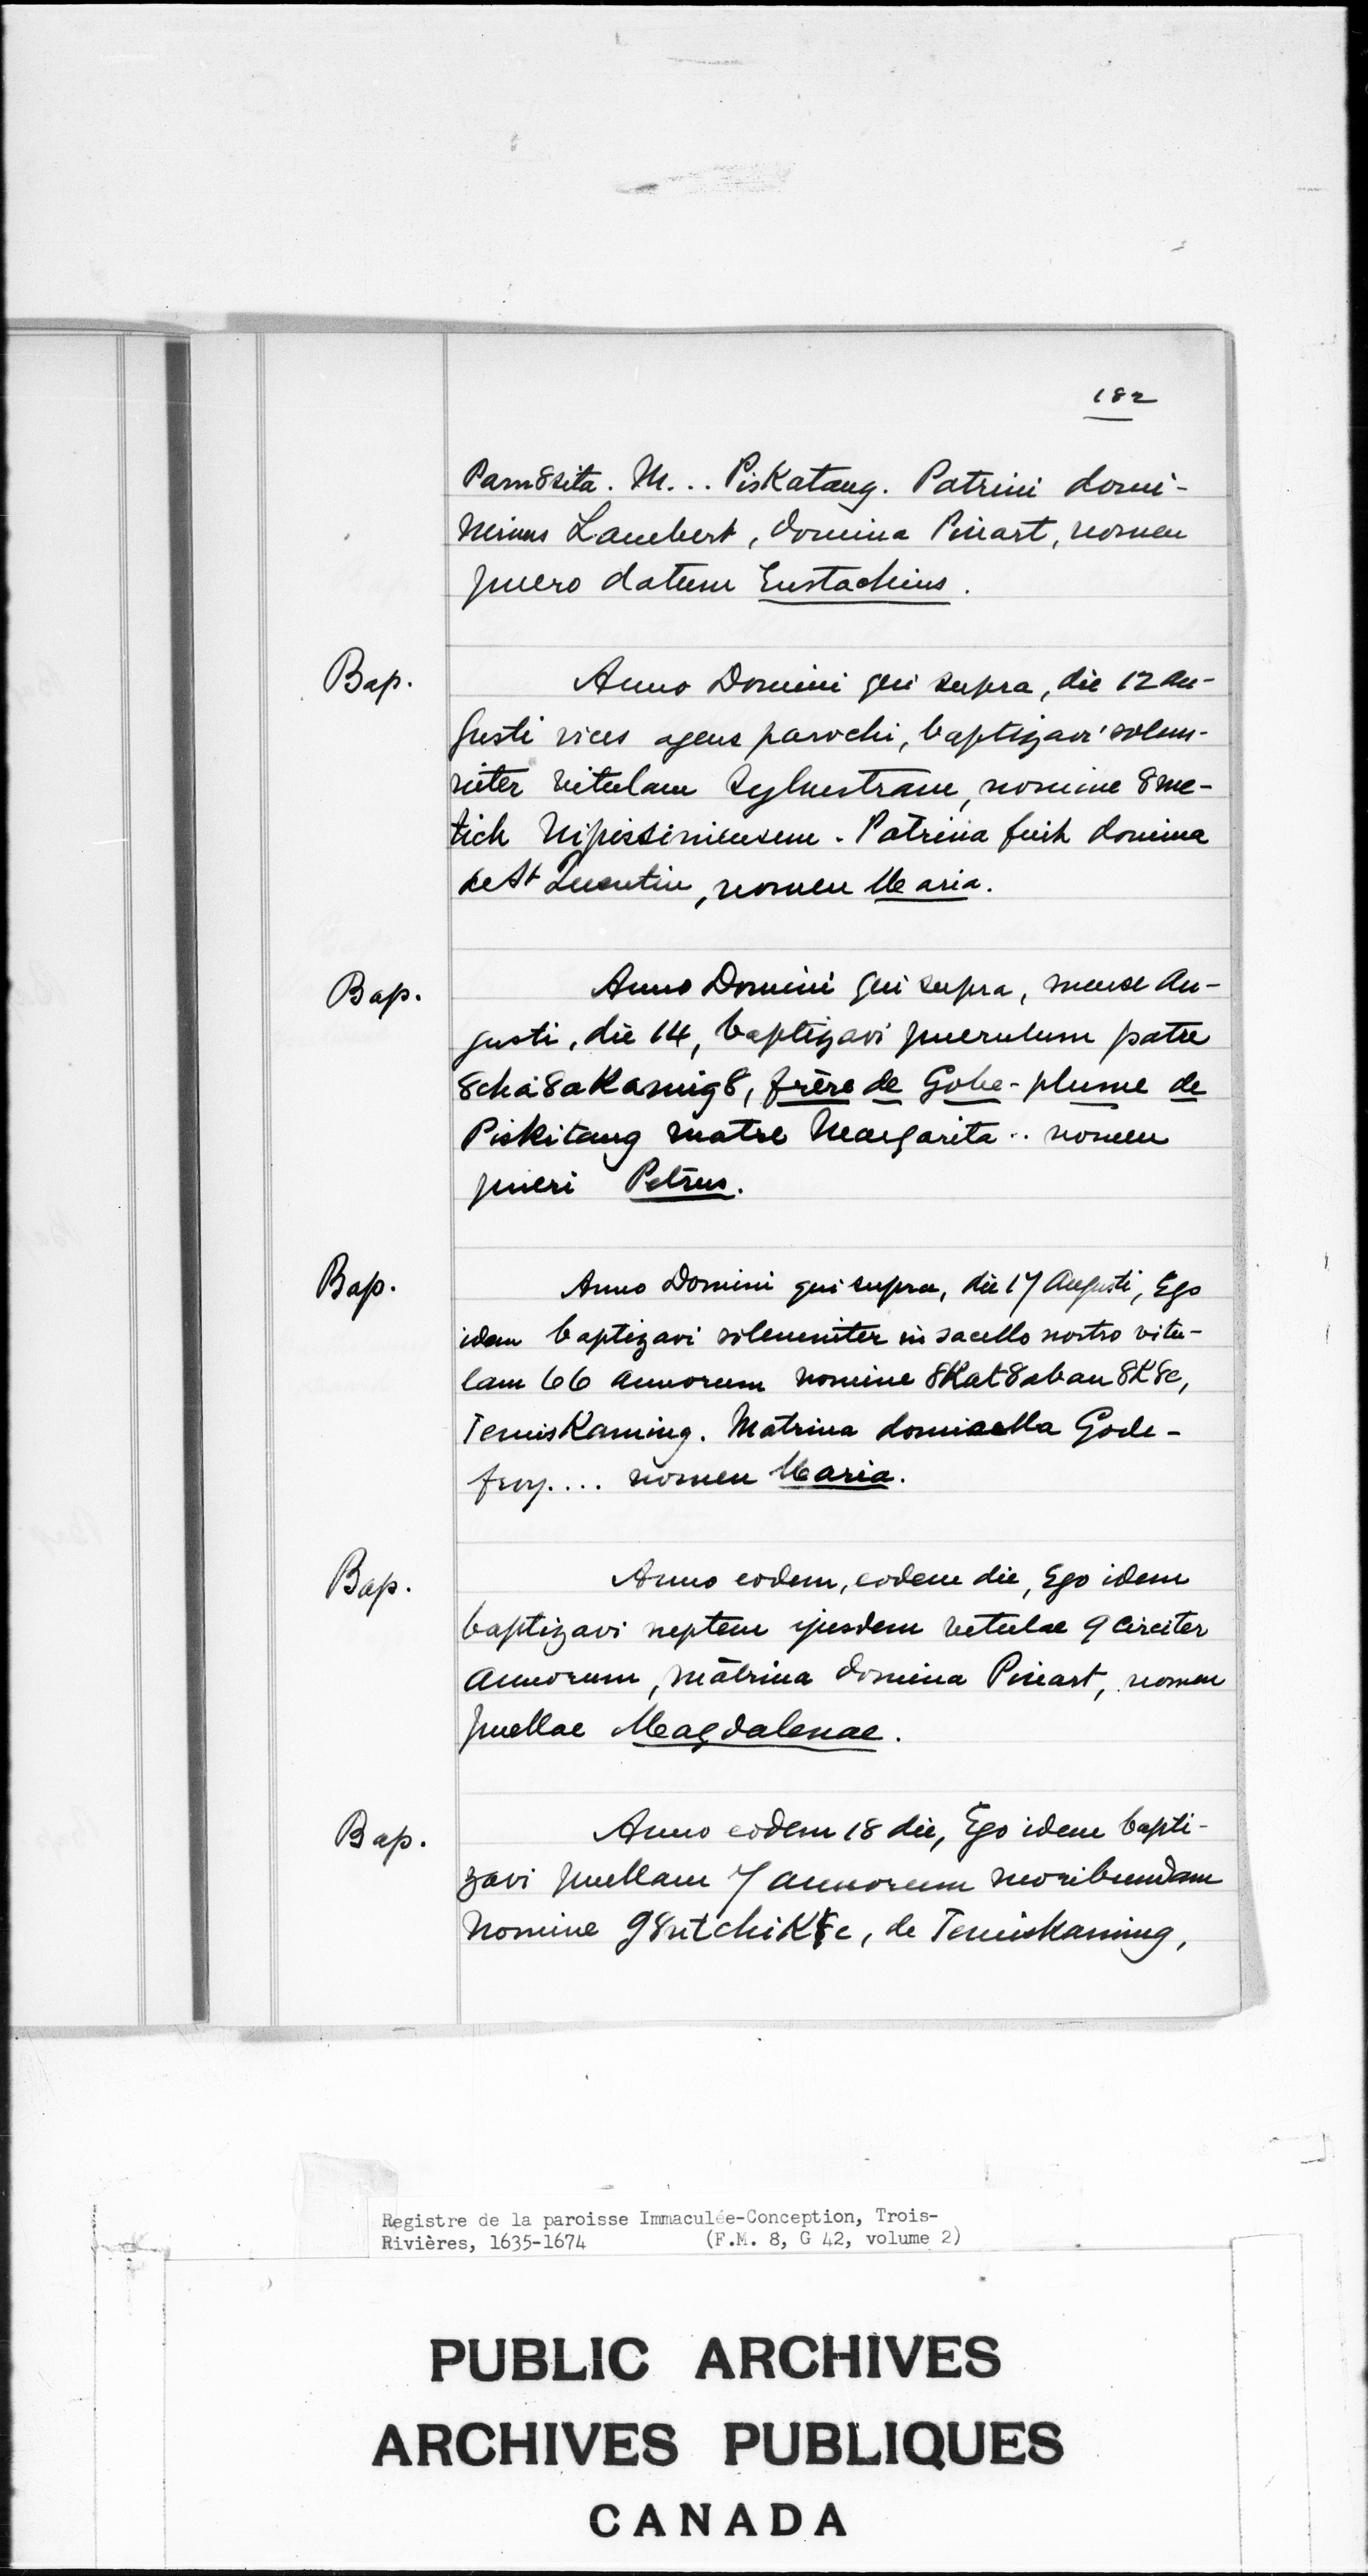 182
Parn8sita. M... PisKatang. Patrini domi-
ninus Lambert, domina Pinart, nomen
puero datum Eustachius.
Bap. Anno Domini qui supra, die 12 au-
gusti vices agens parochi, baptizavi solem-
niter vetulam Sylvestram, nomine 8me-
tich Nipissiniensem. Patrina fuit domina
de St Quentin, nomen Maria.
Bap. Anno Domini qui supra, mense Au-
gusti, die 14, baptizavi puerulum patre
8cha8aKamig8, frère de Gobe-plume de
Piskitang matre Margarita.. nomen
pueri Petrus.
Bap. Anno Domini qui supra, die 17 Augusti, Ego
idem baptizavi solemniter in sacello nostro vitu-
lam 66 annorum nomine 8Kat8aban8K8e,
TemisKaming. Matrina domicella Gode-
froy.... nomen Maria.
Bap. Anno eodem, eodem die, Ego idem
baptizavi neptem ejusdem vetulae 9 circiter
annorum, matrina domina Pinart, nomen
puellae Magdalenae.
Bap. Anno eodem 18 die, Ego idem bapti-
zavi puellam 7 annorum moribundam
nomine 98ntchiK8e, de Temiskaming,
Registre de la paroisse Immaculée-Conception, Trois-
Rivières, 1635-1674 (F.M. 8, G 42, volume 2)
PUBLIC ARCHIVES
ARCHIVES PUBLIQUES
CANADA